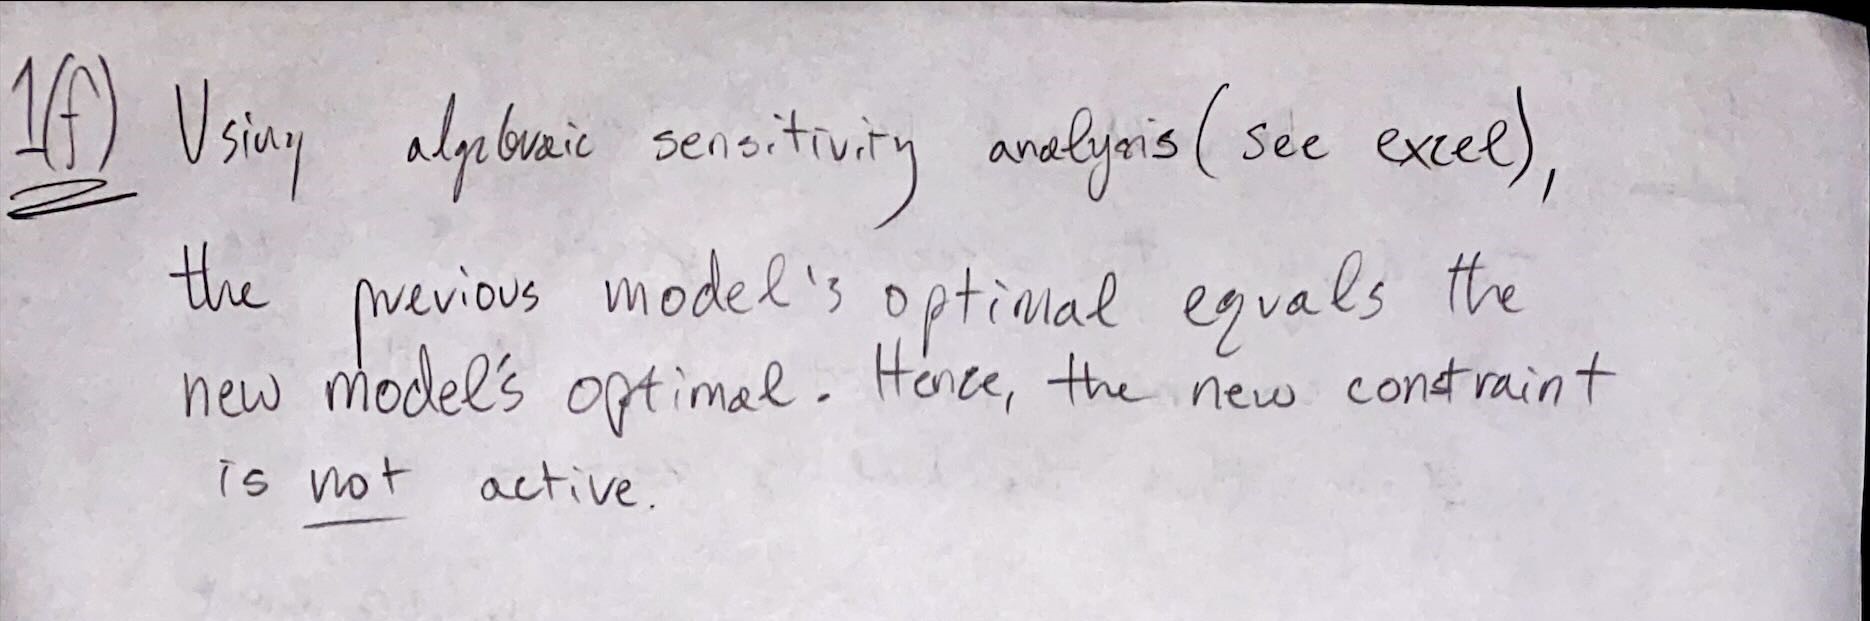 1(f) Using algebraic sensitivity analysis (see excel),
the previous model's optimal equals the
new model's optimal. Hence, the new constraint
is not active.